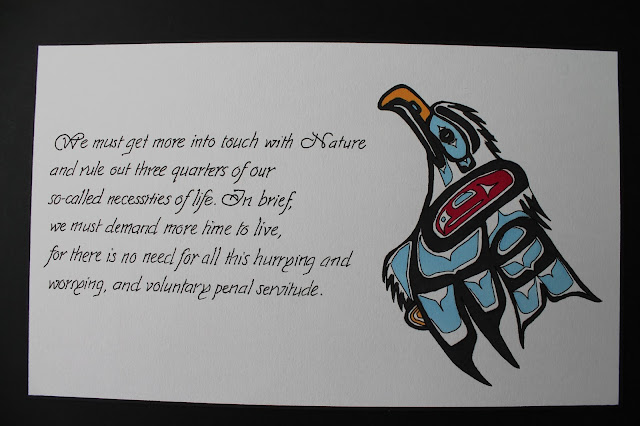 We must get more into touch with Nature
and rule out three quarters of our
so-called necessities of life. In brief,
we must demand more time to live,
for there is no need for all this hurrying and
worrying, and voluntary penal servitude.